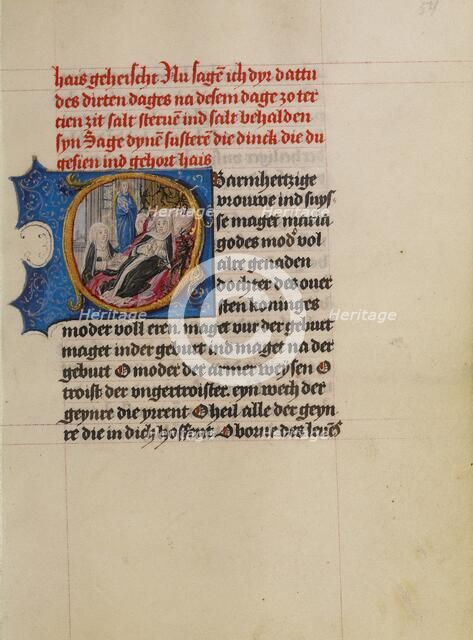 54
hais geheischt Nu sagē ich dyr dattu
des dirten dages na desem dage zo ter
cien zit salt steruē ind salt behalden
syn Sage dynē susterē die dinck die du
gesien ind gehort hais
Barmhertzige
vrouwe ind suys
se maget maria
godes mod' vol
alre genaden
dochter des ouer
sten koninges
moder voll eren maget vur der geburt
maget inder geburt ind maget na der
geburt O moder der armer weysen O
troist der ungertroister eyn wech der
geynre die yrrent O heil alle der geyn-
re die in dich hoffent O borne des leuēs
Heritage
Heritage
Heritage
Heritage
Heritage
Heritage
Heritage